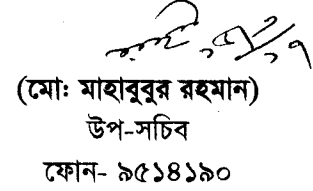 (মোঃ মাহাবুবুর রহমান)
উপ-সচিব
ফোন- ৯৫১৪১৯০